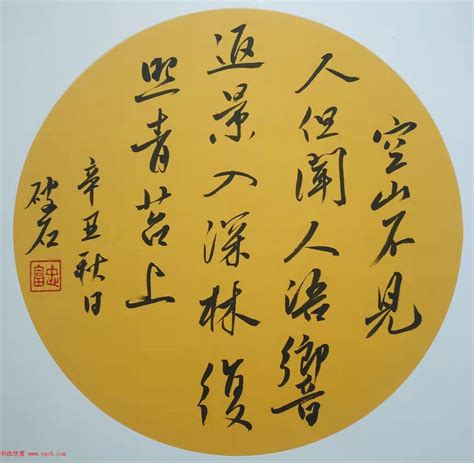 空山不見
人但聞人語響
返景入深林復
照青苔上
辛丑秋日
破石
忠富
书法欣赏 www.yac8.com